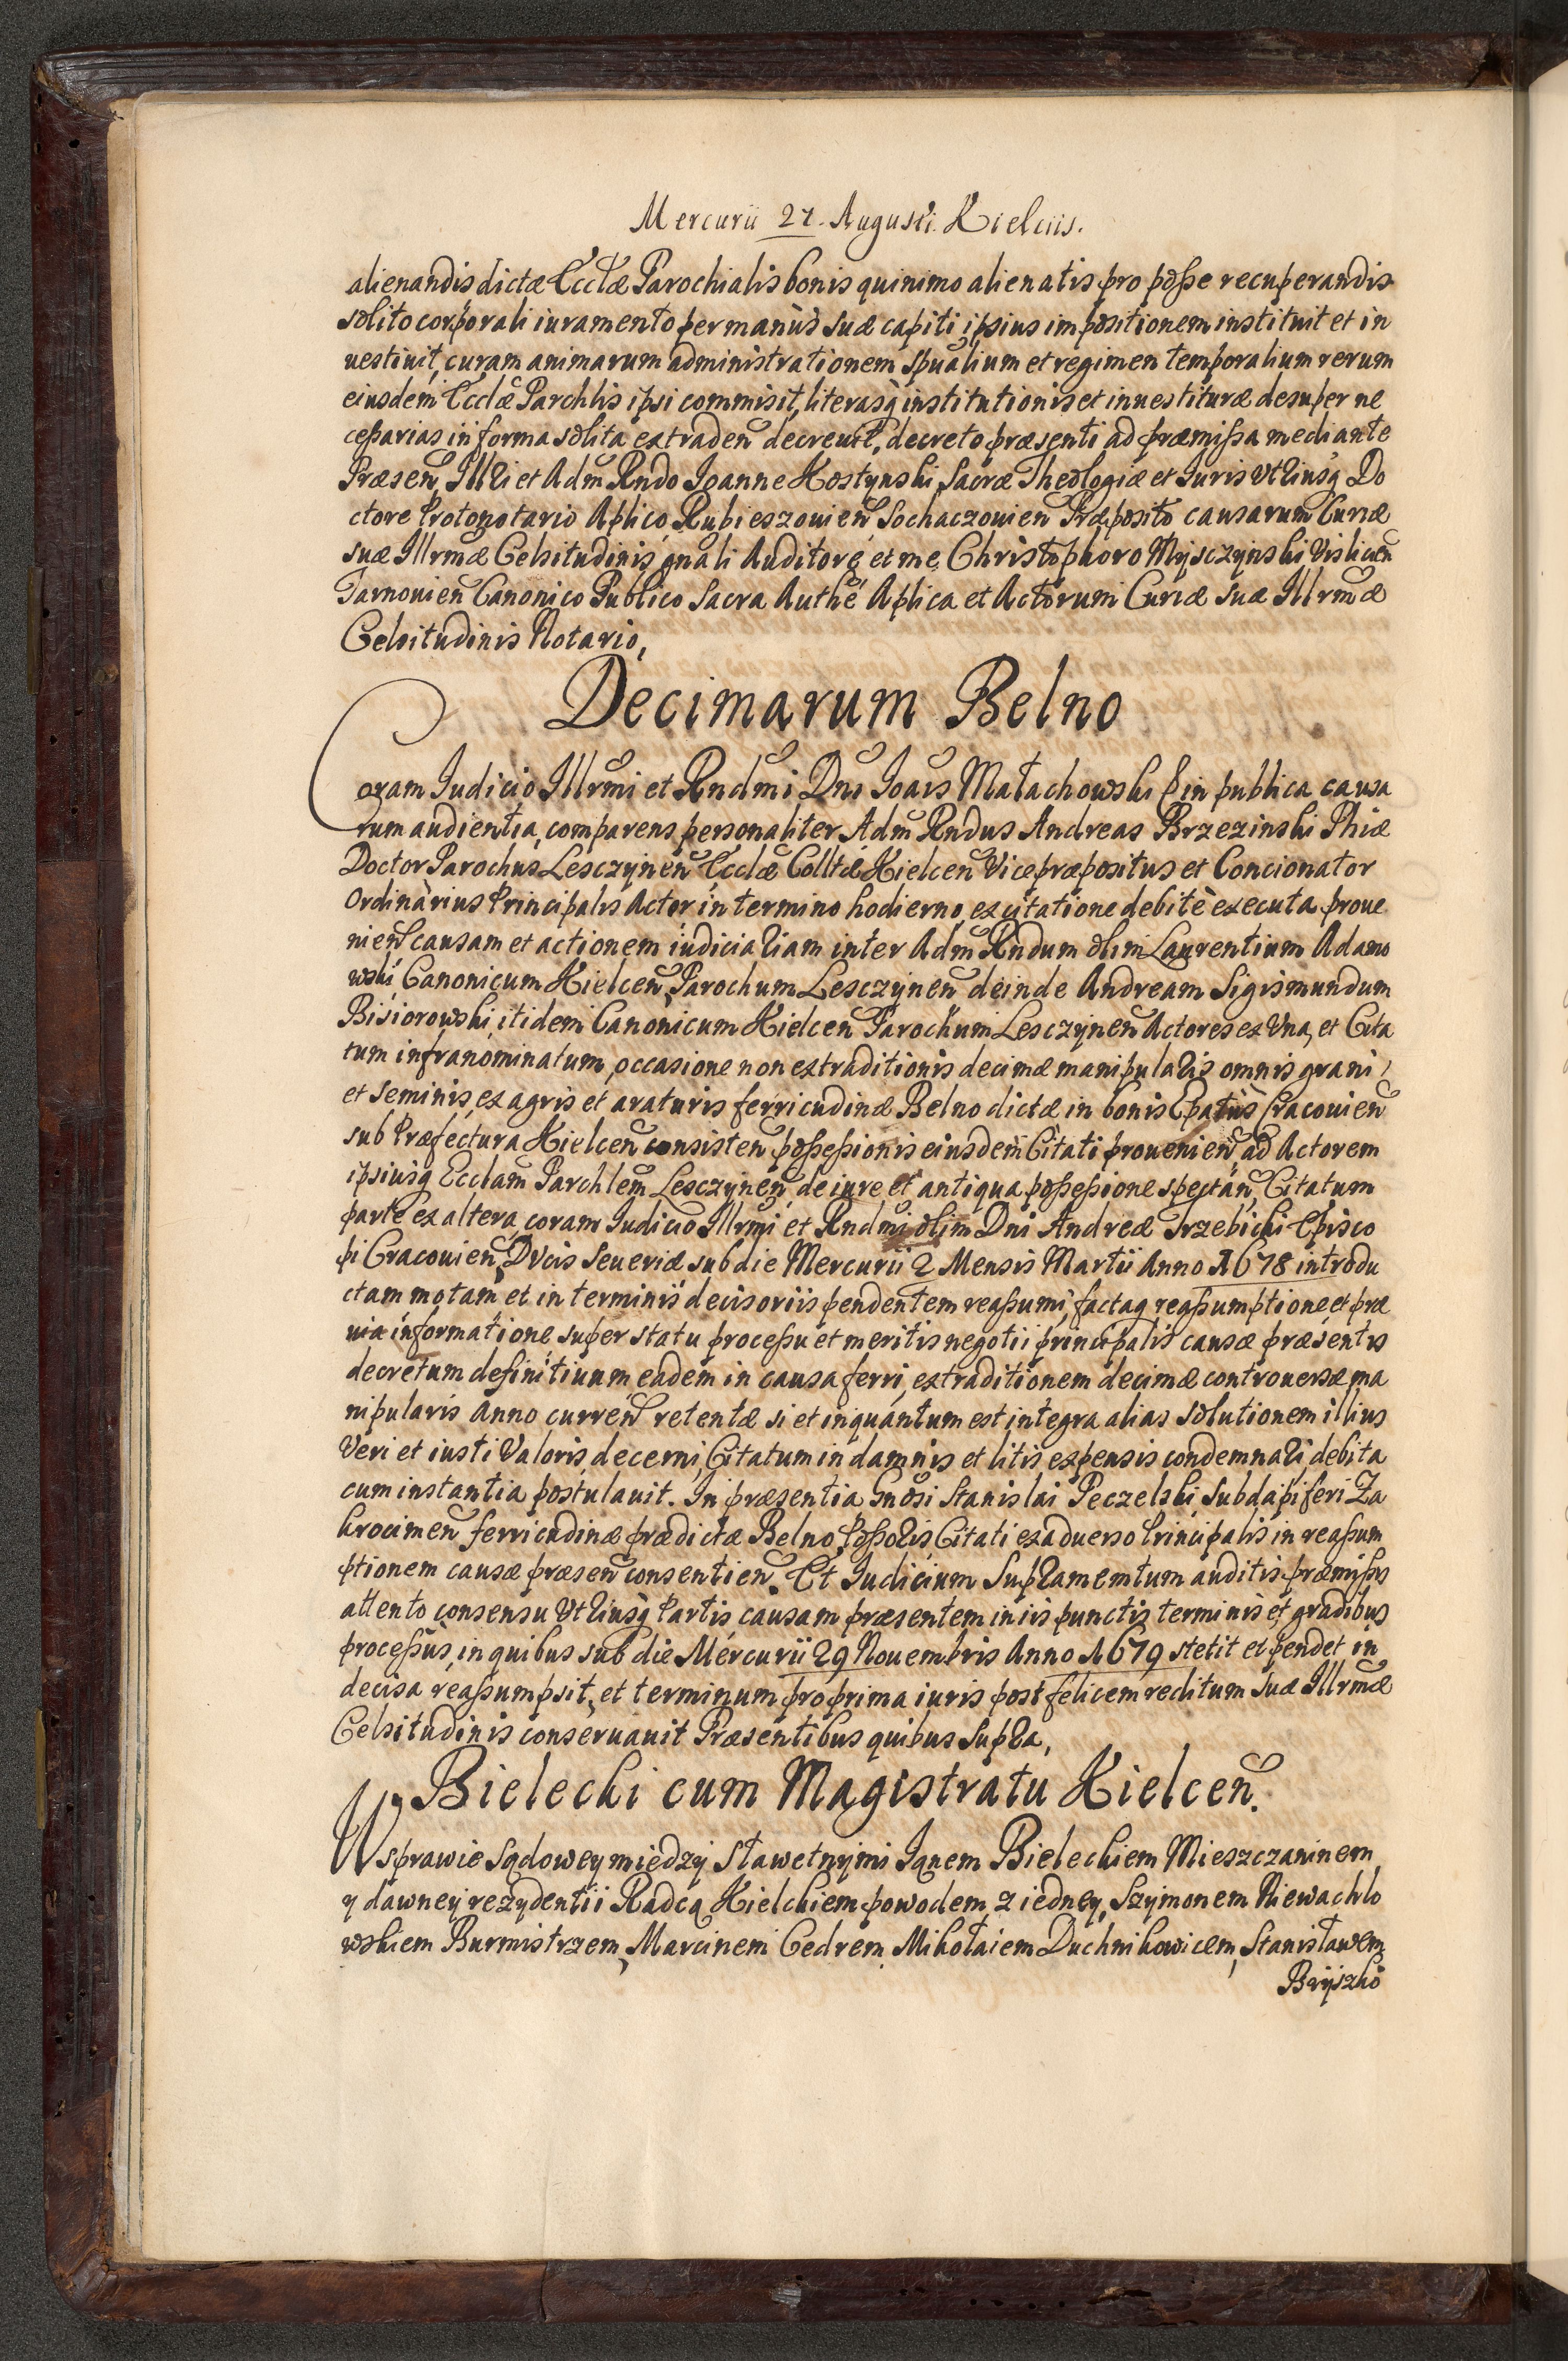 Mercurii 27. Augusti. Kielciis.
alienandis dictæ Eccłæ Parochialis bonis quinimo alienatis pro posse recuperandis
solito corporali iuramento per manus suæ capiti ipsius impositionem instituit et in
uestiuit, curam animarum administrationem spualium et regimen temporalium rerum
eiusdem Ecclæ Parchlis ipsi commisit, literasq institutionis et inuestituræ desuper ne
cessarias in forma solita extraden decreuit, decreto præsenti ad præmissa mediante
Præsen Illri et Adm Rndo Joanne Kostynski Sacræ Theologiæ et Juris Vtriusq Do
ctore Protonotario Aplico Rubieszouien Sochaczouien Præposito causarum Curiæ
suæ Illrmæ Celsitudinis gnali Auditore et me Christophoro Mysczynski Vislicien
Tarnouien Canonico Publico Sacra Authe Aplica et Actorum Curiæ suæ Illrmæ
Celsitudinis Notario,
Decimarum Belno
Coram Judicio Illrmi et Rndmi Dni Joais Małachowski E in publica causa
rum audientia, comparens personaliter Adm Rndus Andreas Brzezinski Phiæ
Doctor Parochus Lesczynen Ecclæ Colltæ Kielcen Vicepræpositus et Concionator
Ordinarius Principalis Actor in termino hodierno, ex citatione debitè executa proue
nien causam et actionem iudiciariam inter Adm Rndum olim Laurentium Adamo
wski Canonicum Kielcen, Parochum Lesczynen deinde Andream Sigismundum
Bisiorowski itidem Canonicum Kielcen Parochum Lesczynen Actores ex Vna, et Cita
tum infranominatum, occasione non extraditionis decimæ manipularis omnis grani
et seminis ex agris et araturis ferricudinæ Belno dictæ in bonis Epatus Cracouien
sub Præfectura Kielcen consisten possessionis eiusdem Citati prouenien ad Actorem
ipsiusq Ecclam Parchlem Lesczynen de iure et antiqua possessione spectan, Citatum
parte ex altera, coram Judicio Illrmi et Rndmi olim Dni Andreæ Trzebicki Episco
pi Cracouien, Ducis Seueriæ sub die Mercurii 2 Mensis Martii Anno 1678 introdu
ctam motam et in terminis decisoriis pendentem reassumi, factaq reassumptione et præ
uia informatione super statu processu et meritis negotii principalis causæ præsentis
decretum definitiuum eadem in causa ferri, extraditionem decimæ controuersæ ma
nipularis Anno curren retentæ si et inquantum est integra alias solutionem illius
Veri et iusti Valoris decerni, Citatum in damnis et litis expensis condemnari debita
cum instantia postulauit. In præsentia Gnosi Stanislai Peczelski Subdapiferi Za
krocimen ferricudinæ prædictæ Belno Possoris Citati ex aduerso Principalis in reassum
ptionem causæ præsen consentien. Et Judicium Supramemtum auditis præmissis
attento consensu Vtriusq Partis causam præsentem in iis punctis terminis et gradibus
processus, in quibus sub die Mercurii 29 Nouembris Anno 1679 stetit et pendet in
decisa reassumpsit, et terminum pro prima iuris post felicem reditum suæ Illrmæ
Celsitudinis conseruauit Præsentibus quibus supra,
Bielecki cum Magistratu Kielcen.
W sprawie Sądowey między Sławetnymi Janem Bieleckiem Mieszczaninem
y dawney rezydentii Radcą Kielckiem powodem z iedney, Szymonem Niewachlo
wskiem Burmistrzem, Marcinem Cedrem, Mikołaiem Duchnikowicem, Stanisławem
Bryszko